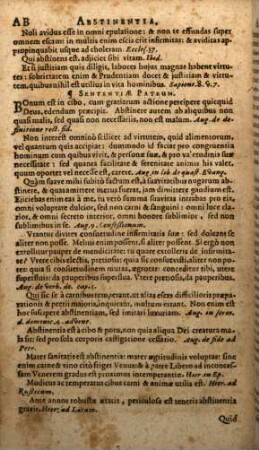 AB ABSTINENTIA.
Noli avidus esse in omni epulatione: & non te effundas super
omnem escam: in multis enim escis erit infirmitas: & aviditas ap-
propinquabit usque ad choleram. Eccles. 37.
Qui abstinens est, adiiciet sibi vitam. Ibid.
Et si justitiam quis diligit, labores hujus magnas habent virtu-
tes: sobrietatem enim & Prudentiam docet & justitiam & virtu-
tem, quibus nihil est utilius in vita hominibus. Sapient. 8. v. 7.
¶ SENTENTIÆ PATRUM.
BOnum est in cibo, cum gratiarum actione percipere quicquid
Deus, edendum præcepit. Abstinere autem ab aliquibus non
quasi malis, sed quasi non necessariis, non est malum. Aug. de de-
finitione rect. fid.
Non interest omninò scilicet ad virtutem, quid alimentorum,
vel quantum quis accipiat: dummodo id faciat pro congruentia
hominum cum quibus vivit, & personæ suæ, & pro valetudinis
suæ necessitate: sed quanta facilitate & serenitate animi his vale-
at, quum oportet vel necesse est, carere. Aug. in lib. de quæst. Evang.
Quàm suave mihi subitò factum est, à suavitatibus nugarum abs-
tinere, & quas amittere metus fuerat, jam dimittere gaudium est.
Eiiciebas enim eas à me, tu vera & summa suavitas, & intrabas
pro eis, omni voluptate dulcior, sed non carni & sanguini: omni
luce clarior, sed omni secreto interior: omni honore sublimior:
sed non sublimibus in se. Aug. 9. Confessionum.
Utantur divites consuetudine infirmitatis suæ: sed doleant se
aliter non posse. Melius enim possent, si aliter possent. Si ergò non
extollitur pauper de mendicitate: tu, quare extolleris de infirmita-
te? Utere electis cibis, pretiosis: quia sic consuevisti, quia aliter non
potes: quia si consuetudinem mutas, ægrotas: conceditur tibi, utere
superfluis: da pauperibus necessaria. Utere pretiosis, da pauperibus vilia.
Aug. de verb. do. cap. 1.
Qui sic se à carnibus temperant, ut alias escas difficilioris præpa-
rationis & pretii majoris inquirant, multum errant. Non est enim
hoc suscipere abstinentiam, sed imitari luxuriam. Aug. in serm.
d. domenic. 4. adhoc.
Abstinentia est à cibo & potu, non quia aliqua Dei creatura ma-
la sit: sed pro sola corporis castigatione cessatio. Aug. de fide ad
Petr.
Mater sanitatis est abstinentia: mater ægritudinis voluptas: sine
enim carne & vino citò friget Venus: & à patre Libero ad inconces-
sam Venerem gradus est proximus intemperantiæ. Hier. in Ep.
Modicus ac temperatus cibus carni & animæ utilis est. Hier. ad
Rusticum.
Ante annos robustæ ætatis, periculosa est teneris abstinentia
gravis. Hier. ad Lætam.
Quid